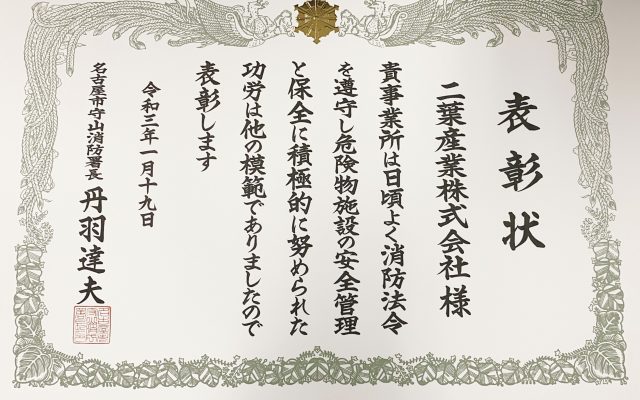 表彰状
二葉産業株式会社 様
貴事業所は日頃よく消防法令
を遵守し危険物施設の安全管理
と保全に積極的に努められた
功労は他の模範でありましたので
表彰します
令和三年一月十九日
名古屋市守山消防署長 丹羽達夫